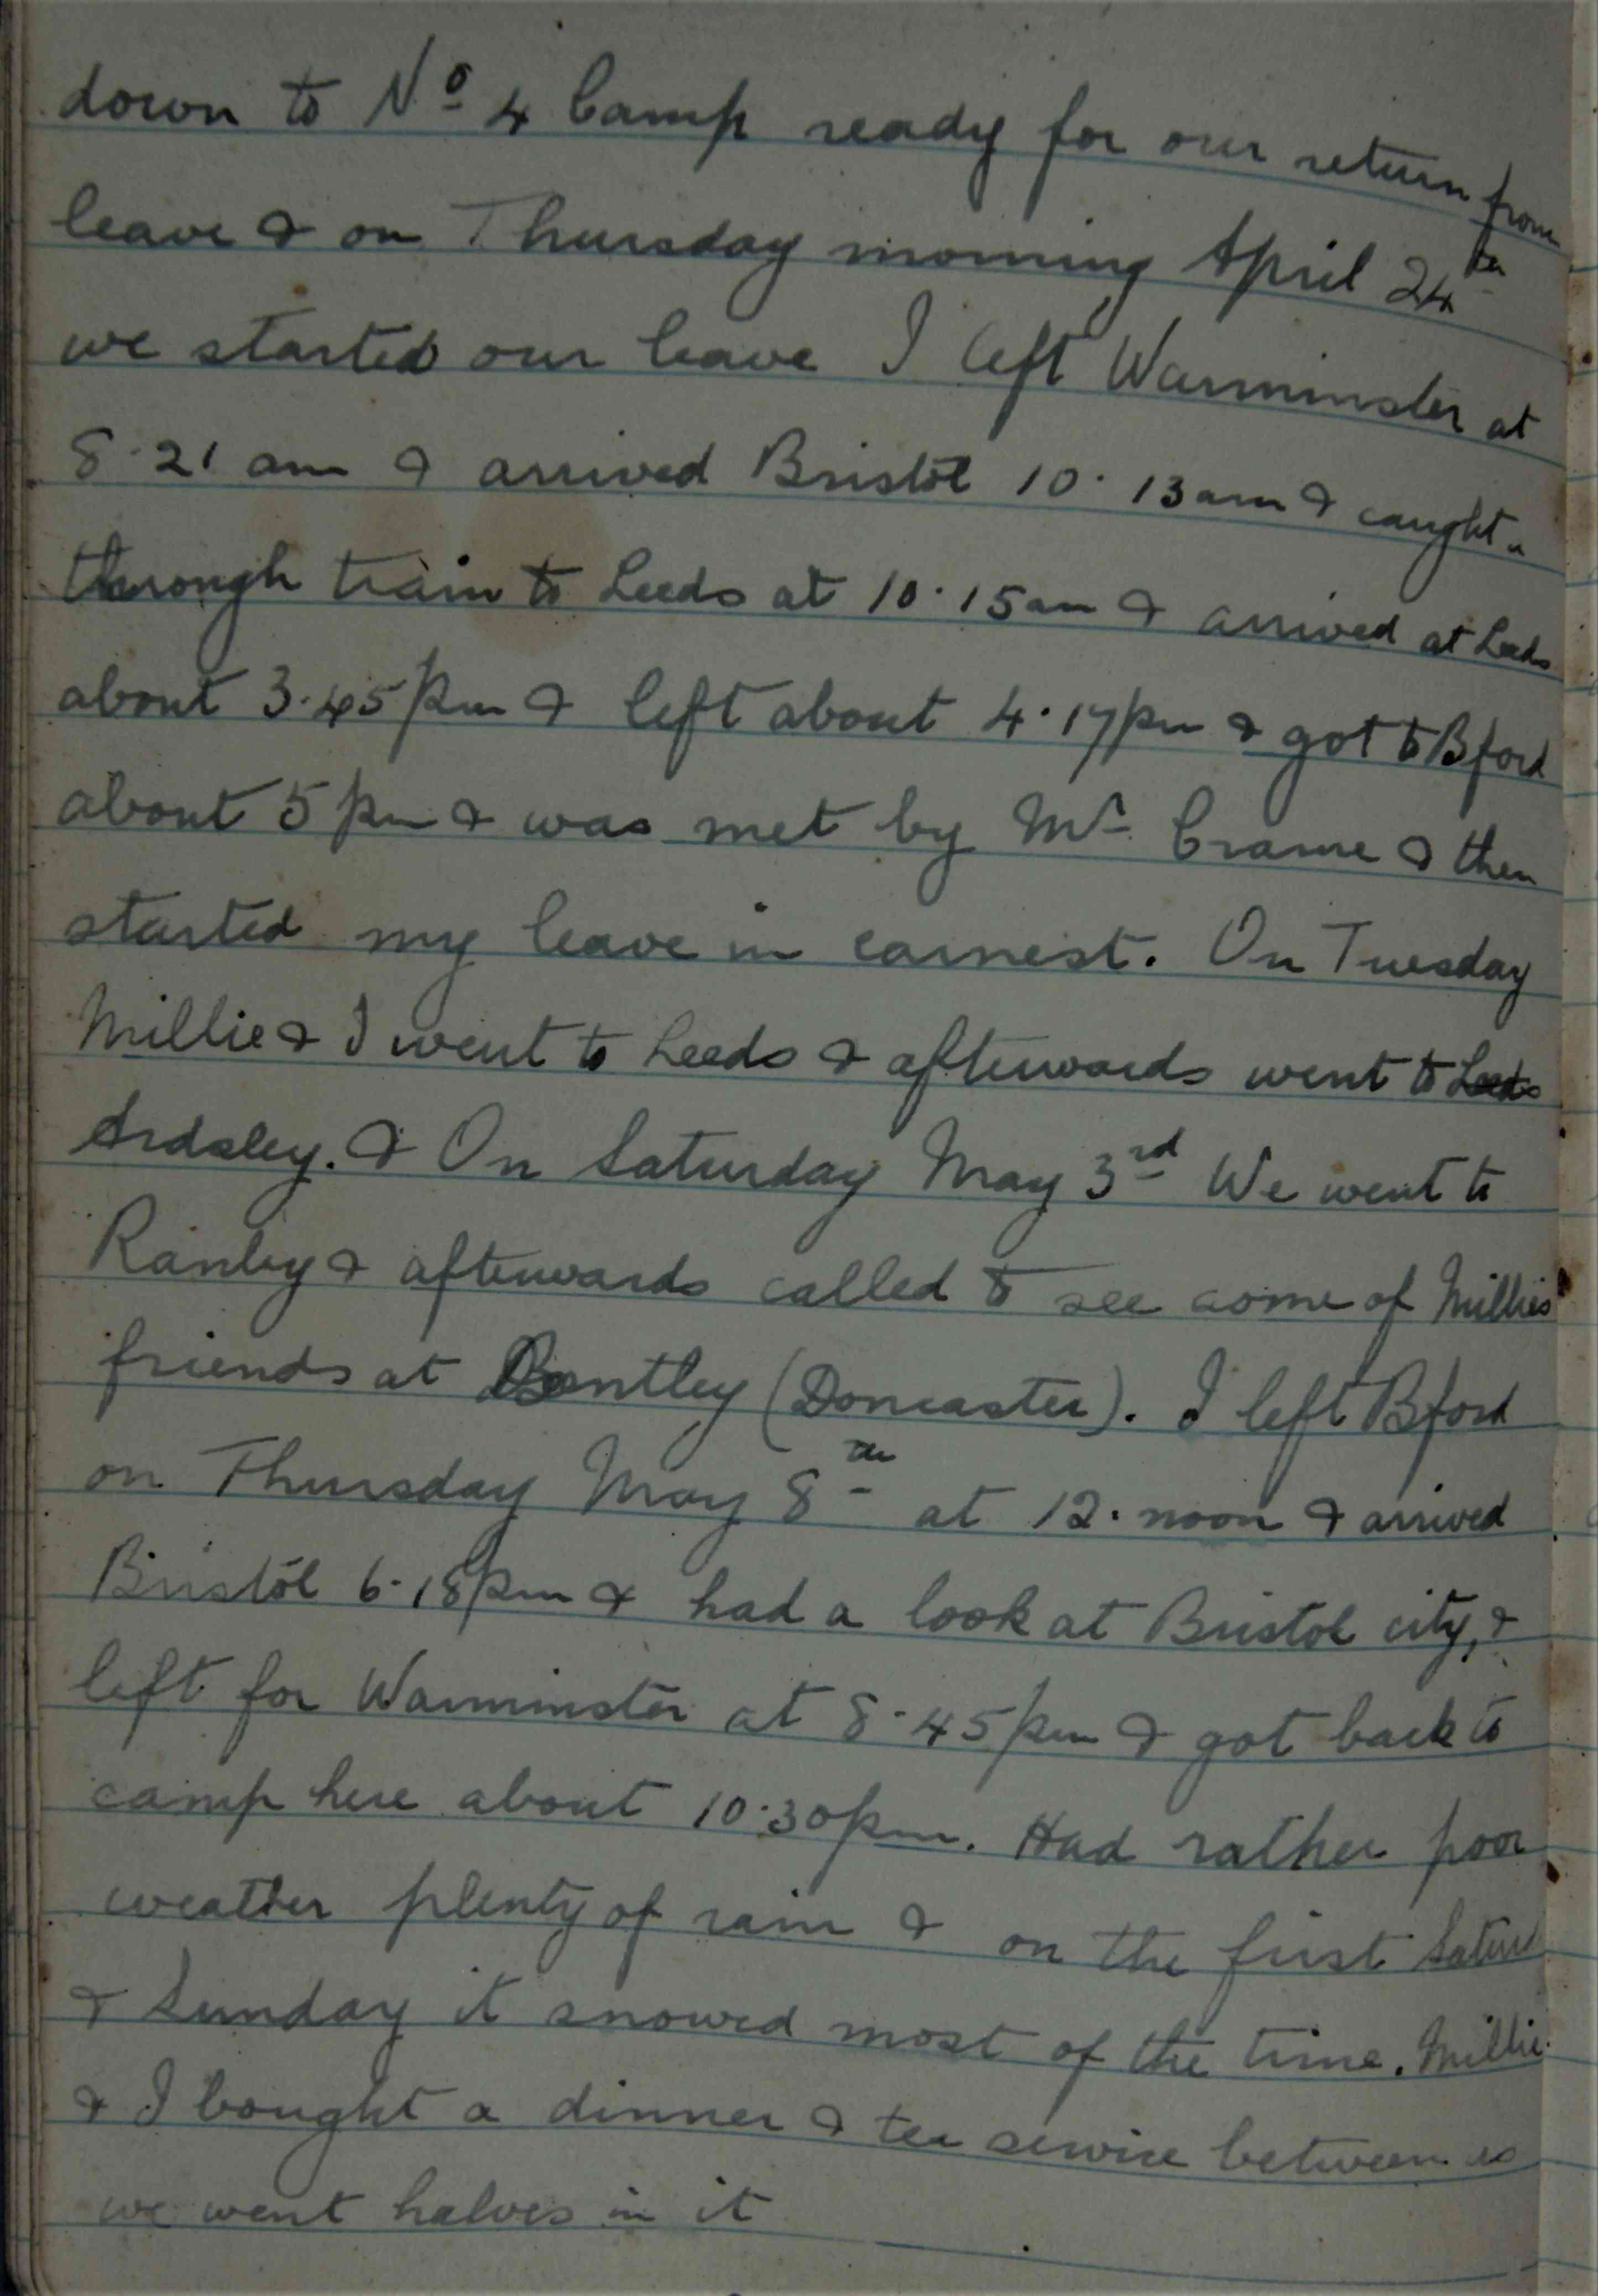 down to Nº 4 Camp ready for our return from
leave & on Thursday morning April 24th
we started our leave I left Warminster at
8.21 am & arrived Bristol 10.13am & caught a
through train to Leeds at 10.15am & arrived at Leeds
about 3.45pm & left about 4.17pm & got to Bford
about 5pm & was met by Mr. Crame & then
started my leave in earnest. On Tuesday
Millie & I went to Leeds & afterwards went to Leeds
Ardsley. & On Saturday May 3rd We went to
Ranby & afterwards called to see some of Millies
friends at Bentley (Doncaster). I left Bford
on Thursday May 8th at 12.noon & arrived
Bristol 6.18pm & had a look at Bristol city, &
left for Warminster at 8.45pm & got back to
camp here about 10.30pm. Had rather poor
weather plenty of rain & on the first Saturd
& Sunday it snowed most of the time. Millie
& I bought a dinner & tea service between us
we went halves in it